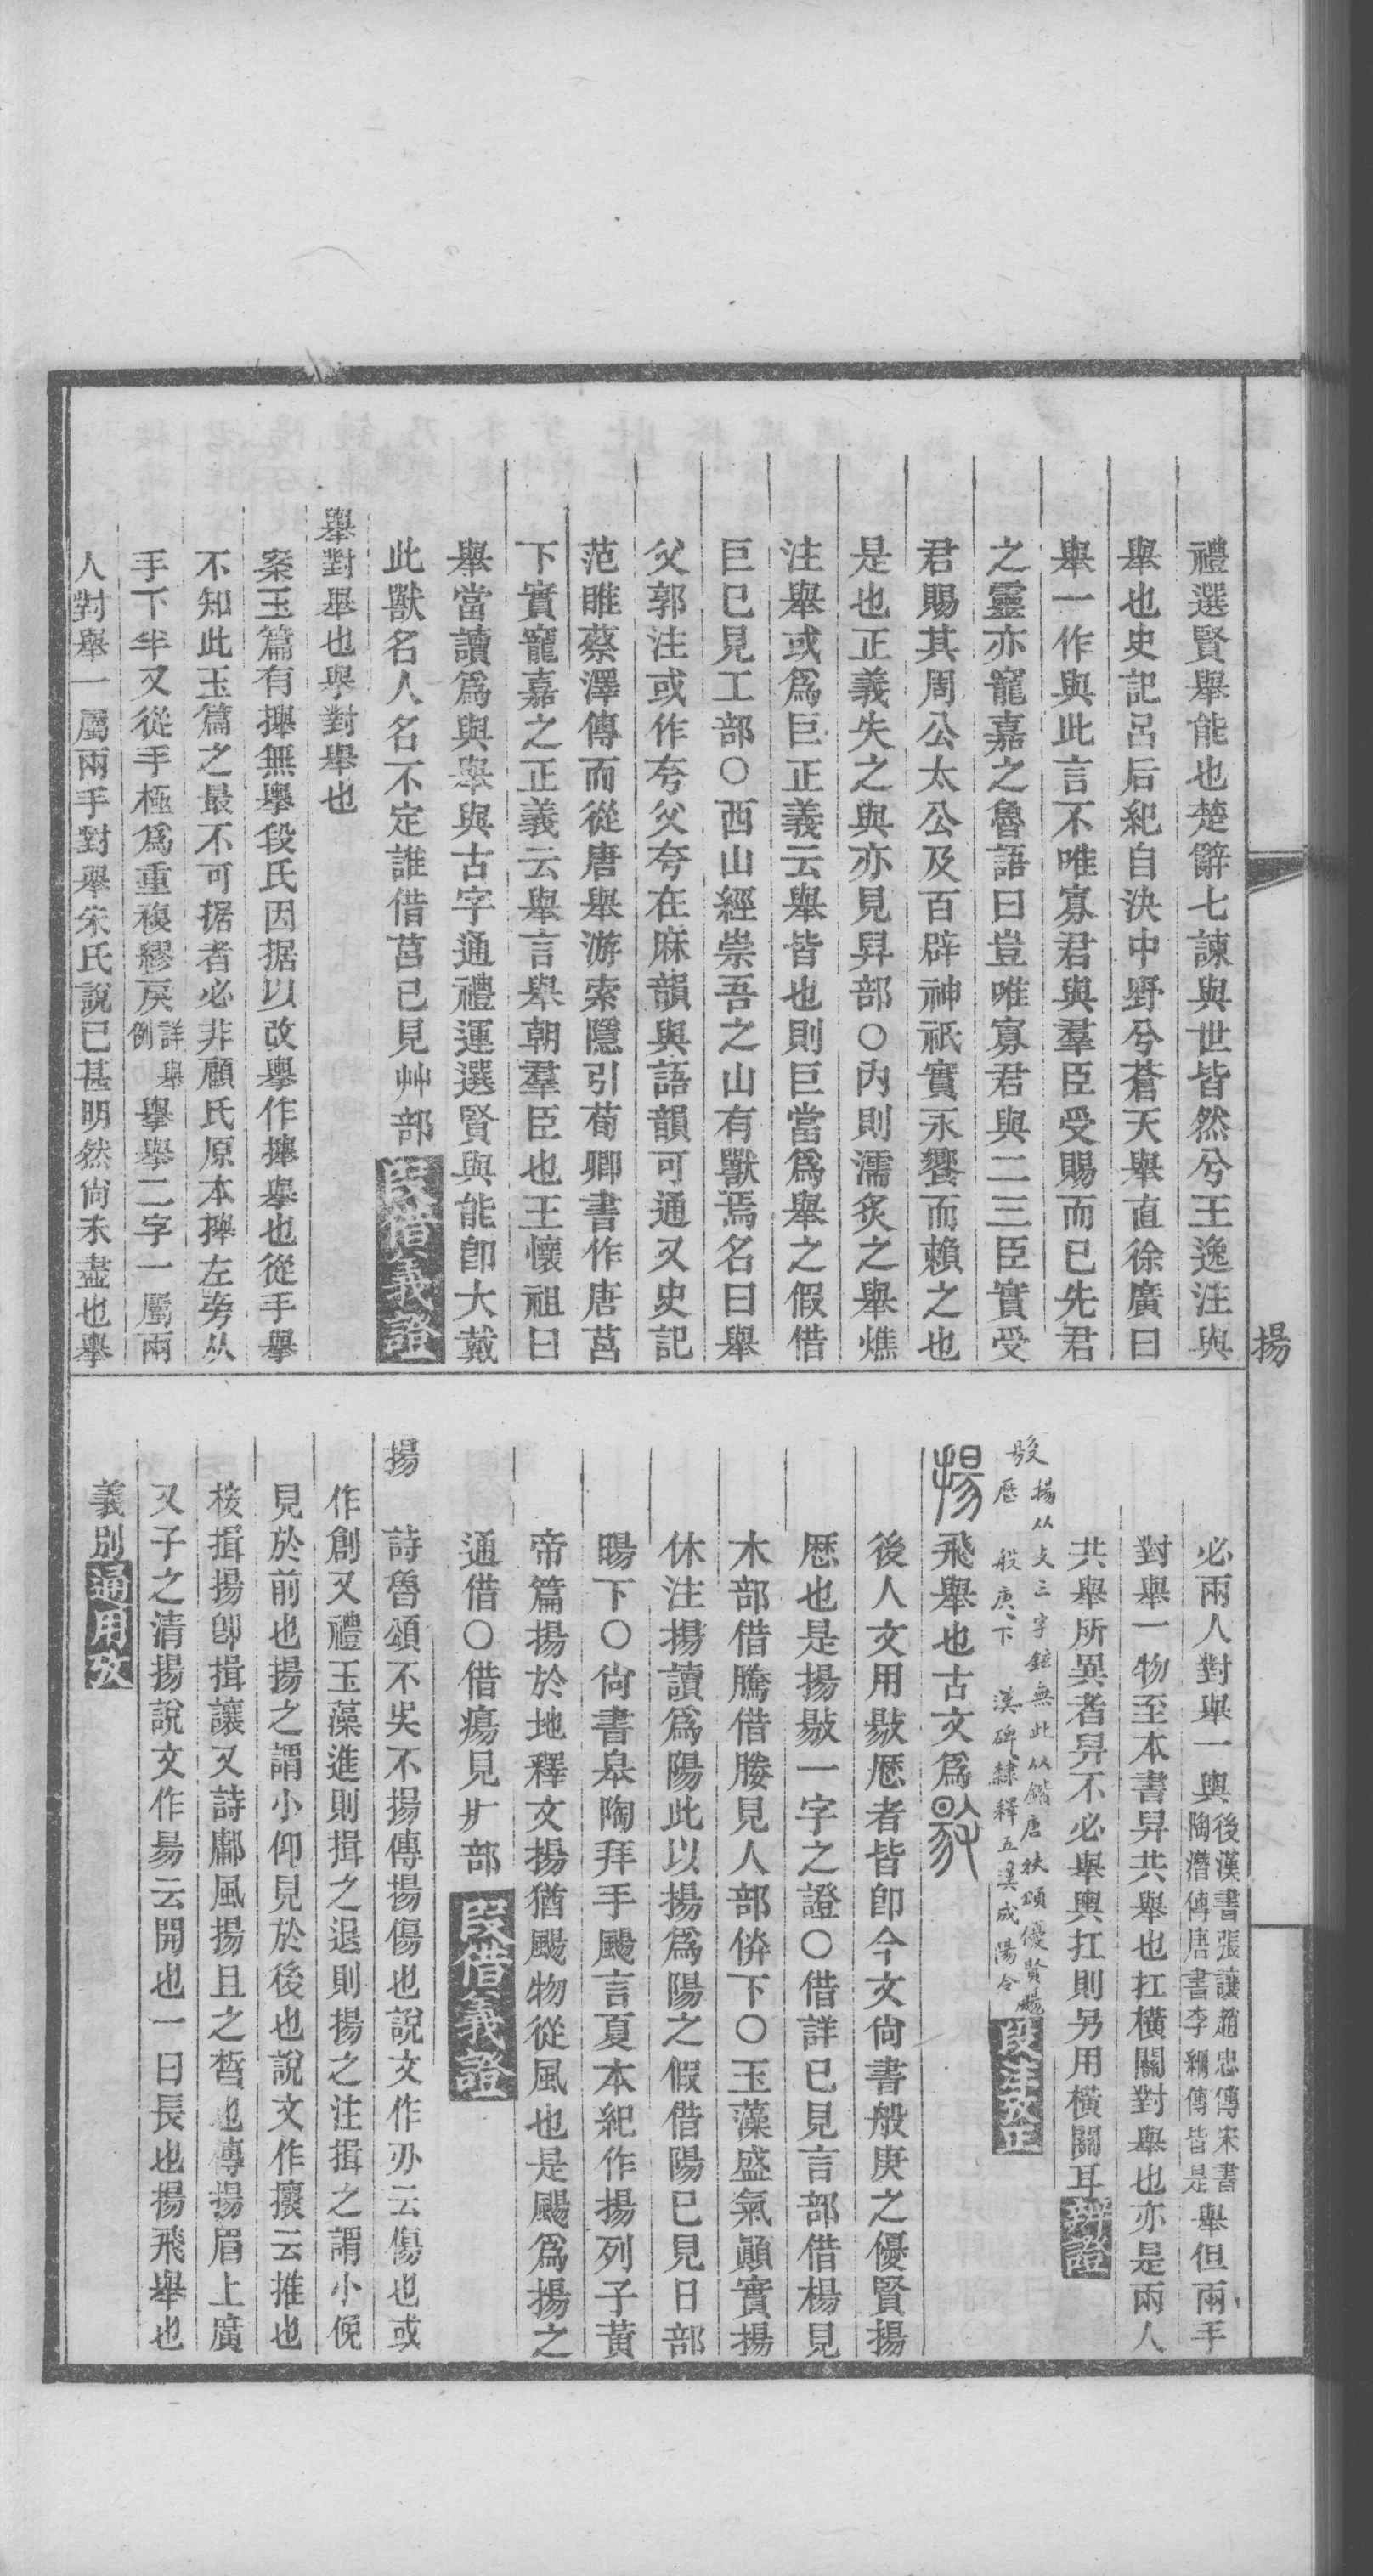 揚
禮選賢舉能也楚辭七諫與世皆然兮王逸注與
舉也史記呂后紀自決中野兮蒼天舉直徐廣曰
舉一作與此言不唯寡君與羣臣受賜而已先君
之靈亦寵嘉之魯語曰豈唯寡君與二三臣實受
君賜其周公太公及百辟神祇實永饗而賴之也
是也正義失之與亦見舁部○內則濡炙之舉燋
注舉或爲巨正義云舉皆也則巨當爲舉之假借
巨已見工部○西山經崇吾之山有獸焉名曰舉
父郭注或作夸父夸在麻韻與語韻可通又史記
范睢蔡澤傳而從唐舉游索隱引荀卿書作唐莒
下實寵嘉之正義云舉言舉朝羣臣也王懷祖曰
舉當讀爲與舉與古字通禮運選賢與能卽大戴
此獸名人名不定誰借莒已見艸部段借義證
擧對舉也舉對舉也
案玉篇有攑無擧段氏因据以改擧作攑舉也從手擧
不知此玉篇之最不可据者必非顧氏原本攑左旁从
手下半又從手極爲重複繆戾詳舉例擧舉二字一屬兩
人對舉一屬兩手對舉宋氏說已甚明然尙未盡也擧
必兩人對舉一輿後漢書張讓趙忠傳宋書陶潛傳唐書李綱傳皆是舉但兩手
對舉一物至本書舁共舉也扛橫關對舉也亦是兩人
共舉所異者舁不必舉輿扛則另用橫關耳辨證
敭 揚从攴三字鉉無此从鍇唐扶頌優賢颺
歷 般庚下 漢碑隸釋五 成陽令段注攷正
揚飛舉也古文爲敭
後人文用敭歷者皆卽今文尙書般庚之優賢揚
歷也是揚敭一字之證○借詳已見言部借楊見
木部借騰借媵見人部倂下○玉藻盛氣顚實揚
休注揚讀爲陽此以揚爲陽之假借陽已見日部
暘下○尙書皋陶拜手颺言夏本紀作揚列子黃
帝篇揚於地釋文揚猶颺物從風也是颺爲揚之
通借○借瘍見疒部段借義證
揚 詩魯頌不吳不揚傳揚傷也說文作刅云傷也或
作創又禮玉藻進則揖之退則揚之注揖之謂小俛
見於前也揚之謂小仰見於後也說文作攘云推也
桉揖揚卽揖讓又詩鄘風揚且之晳也傳揚眉上廣
又子之清揚說文作昜云開也一曰長也揚飛舉也
義別通用攷